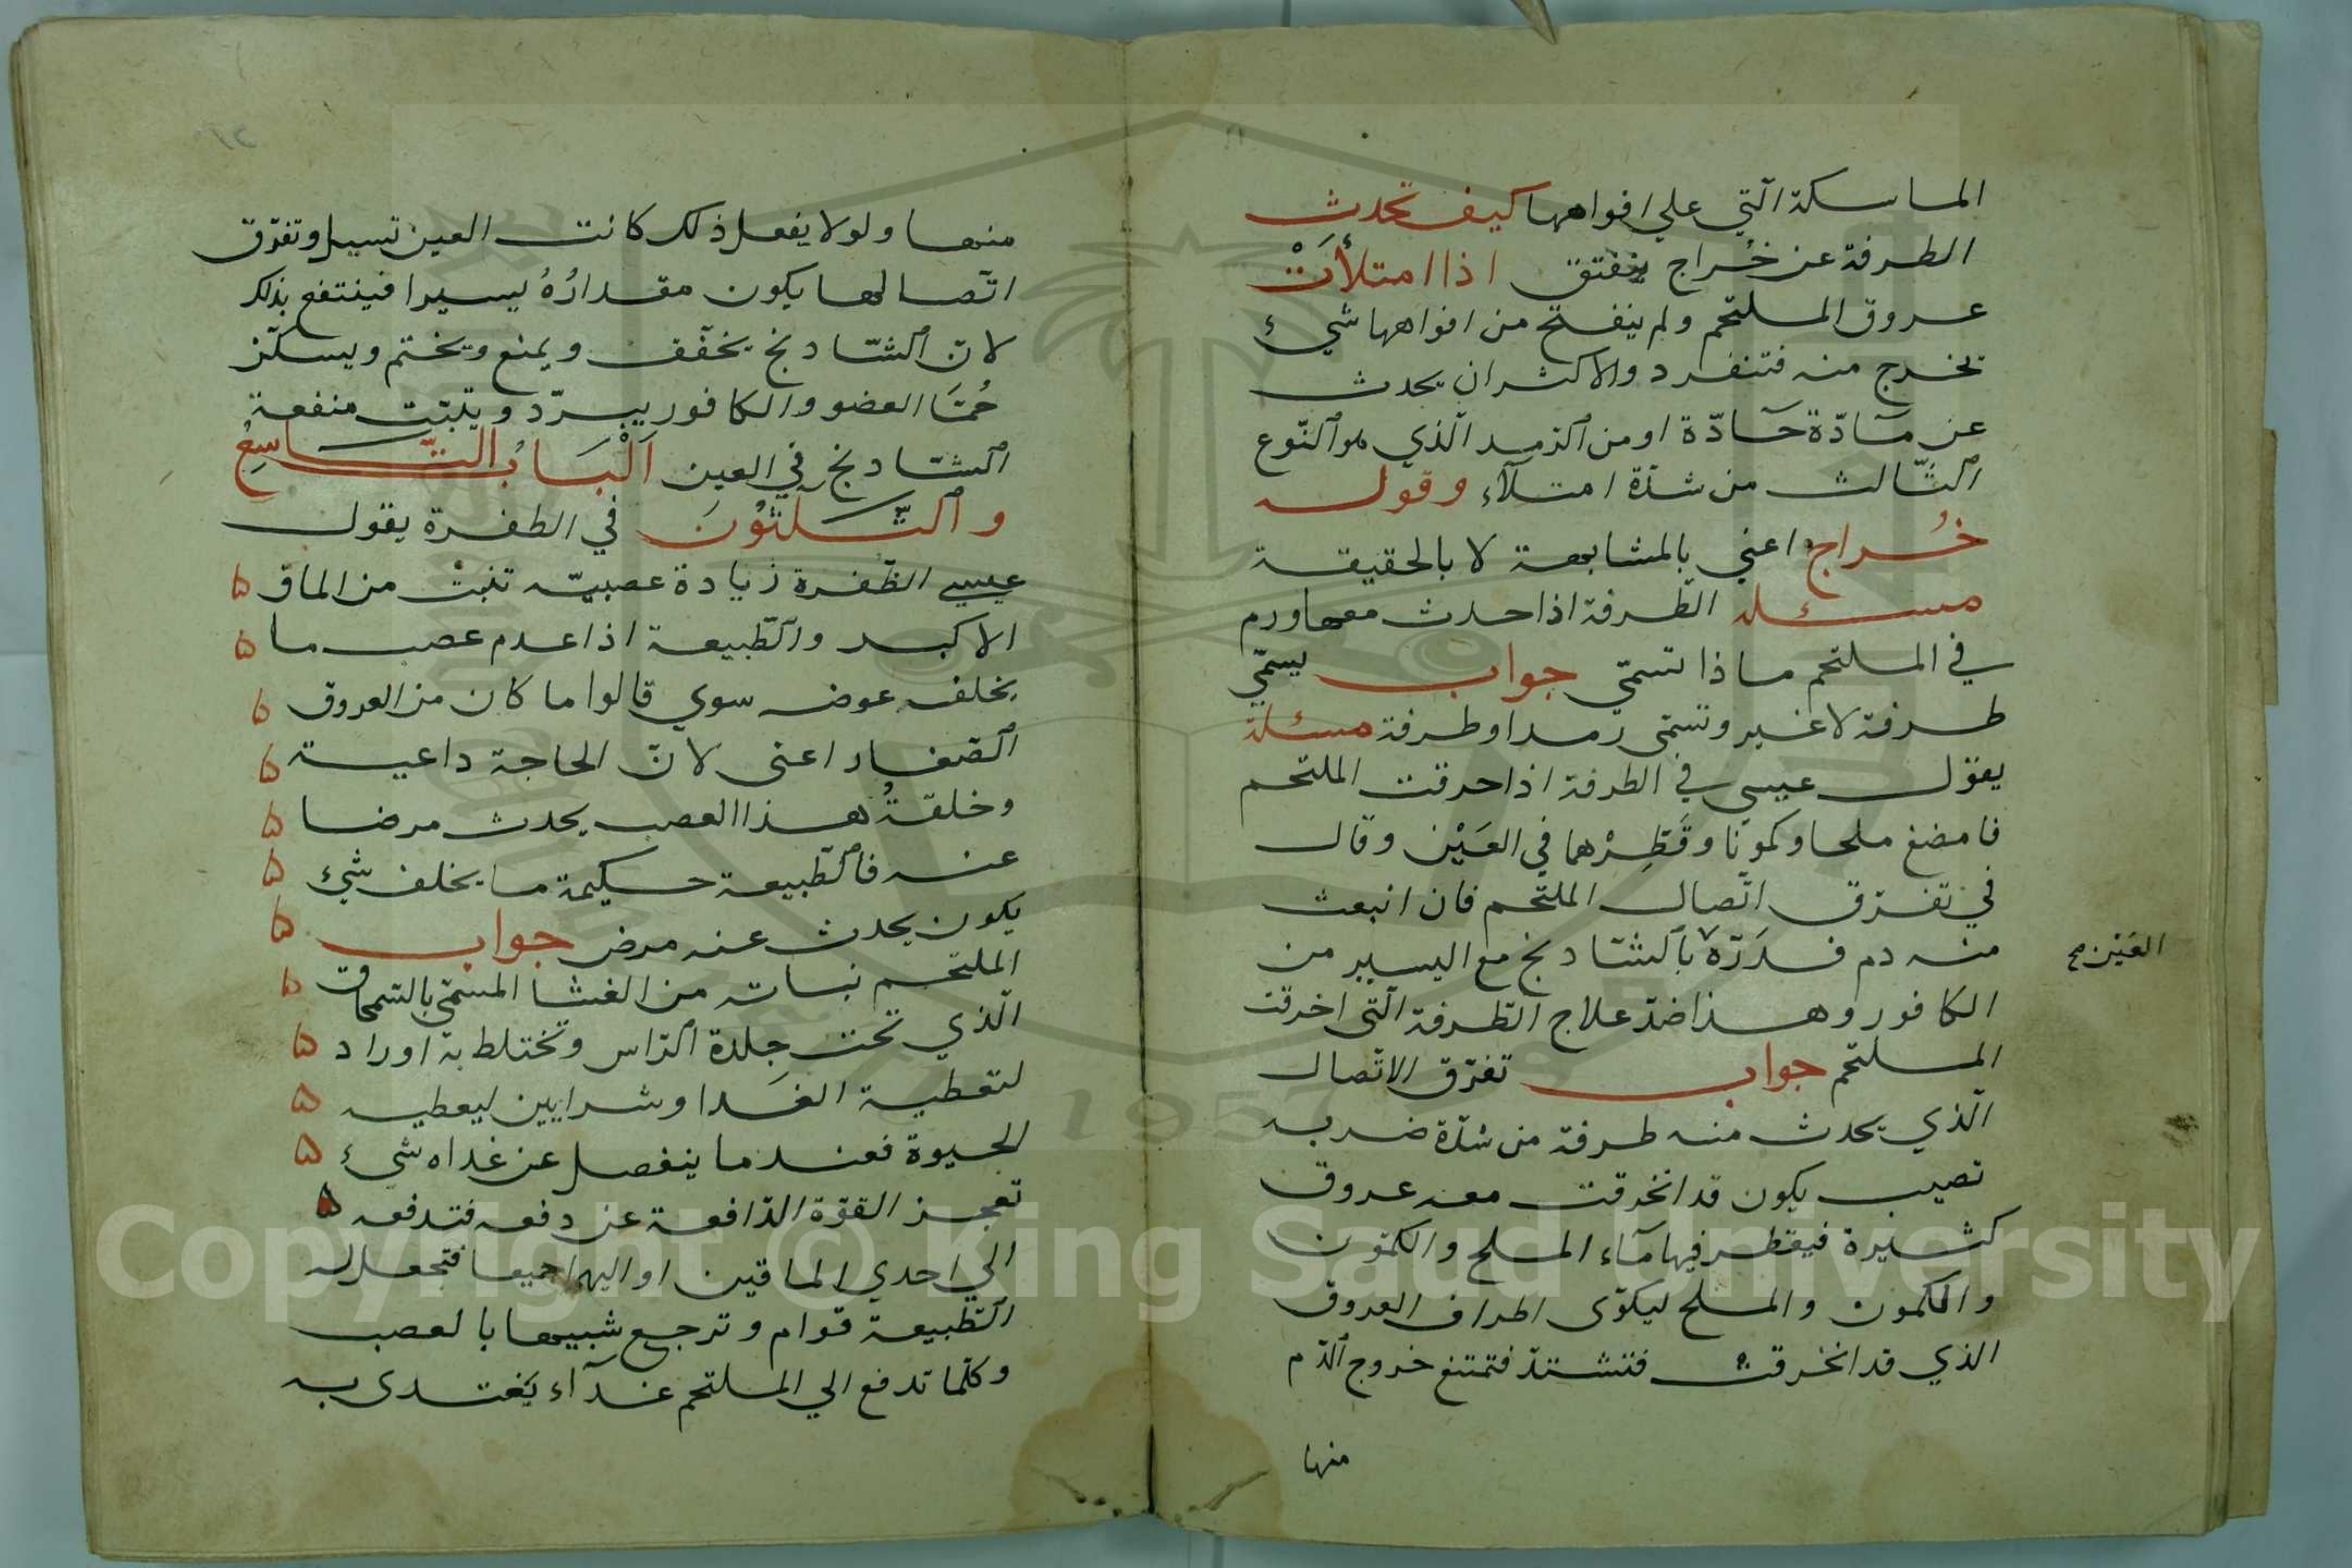 الماسكة الّتي علي افواهها كيف تحدث
الطرفة عن خُراج ينفتق اذا امتلأَتْ
عروق الملتحم ولم ينفتح من افواهها شيء
تخرج منه فتنفرد والاكثر ان يحدث
عن مادّة حادّة او من الرّمد الّذي هو النّوع
الثّالث من شدّة امتلاء وقوله
خُراج اعني بالمشابهة لا بالحقيقة
مسئله الطّرفة اذا حدث معها ورم
في الملتحم ماذا تسمّي جواب يسمّي
طرفة لا غير وتسمّى رمدا وطرفة مسئلة
يقول عيسي في الطرفة اذا حرقت الملتحم
فامضغ ملحا وكمونا وقَطِرْهما في العَيْن وقال
في تفرّق اتّصال الملتحم فان انبعث
منه دم فدَرّه بالشّادنج مع اليسير من
العَيْن صح
الكافور وهذا ضدّ علاج الطّرفة الّتي اخرقت
الملتحم جواب تفرّق الاتّصال
الّذي يحدث منه طرفة من شدّة ضربه
تصيب يكون قد انخرقت معه عروق
كثيرة فيقطر فيها مآء الملح والكمّون
والكمون والملح ليكوّى اطراف العروق
الذي قد انخرقت فتشتدّ فتمتنع خروج الدّم
منها
منها ولو لا يفعل ذلك كانت العين تسيل وتفرّق
اتّصالها يكون مقدارُهُ يسيرا فينتفع بذلك
لانّ الشّادنج يخفّف ويمنع ويختم ويسكّن
حُمّا العضو والكافور يبرّد ويثبّت منفعة
الشّادنج في العين اَلْبَابُ التّاسِعُ
والثّلثُونَ في الظفرة يقول
عيسي الظّفرة زيادة عصبيّه تنبتْ من الماق ۵
الاكبر والطّبيعة اذا عدم عصب ما ۵
يخلف عوضه سوي قالوا ما كان من العروق ۵
الصّغار اعنى لانّ الحاجة داعية ۵
وخلقةُ هذا العصب يحدث مرضا ۵
عنه فالطّبيعة حكيمة ما يخلف شيء ۵
يكون يحدث عنه مرض جواب ۵
الملتحم نباته من الغشا المسمّي بالسّمحاق ۵
الّذي تحت جِلدة الرّاس وتختلط به اوراد ۵
لتعطية الغدا وشرايين ليعطيه ۵
الحيوة فعند ما ينفصل عن غداه شيء ۵
تعجز القوّة الدّافعة عن دفعه فتدفعه ۵
الي احدي الماقين او اليهما جميعا فتجعل له
الطّبيعة قوام وترجع شبيها بالعصب
وكلّما تدفع الي الملتحم غدآء يَغتدى به